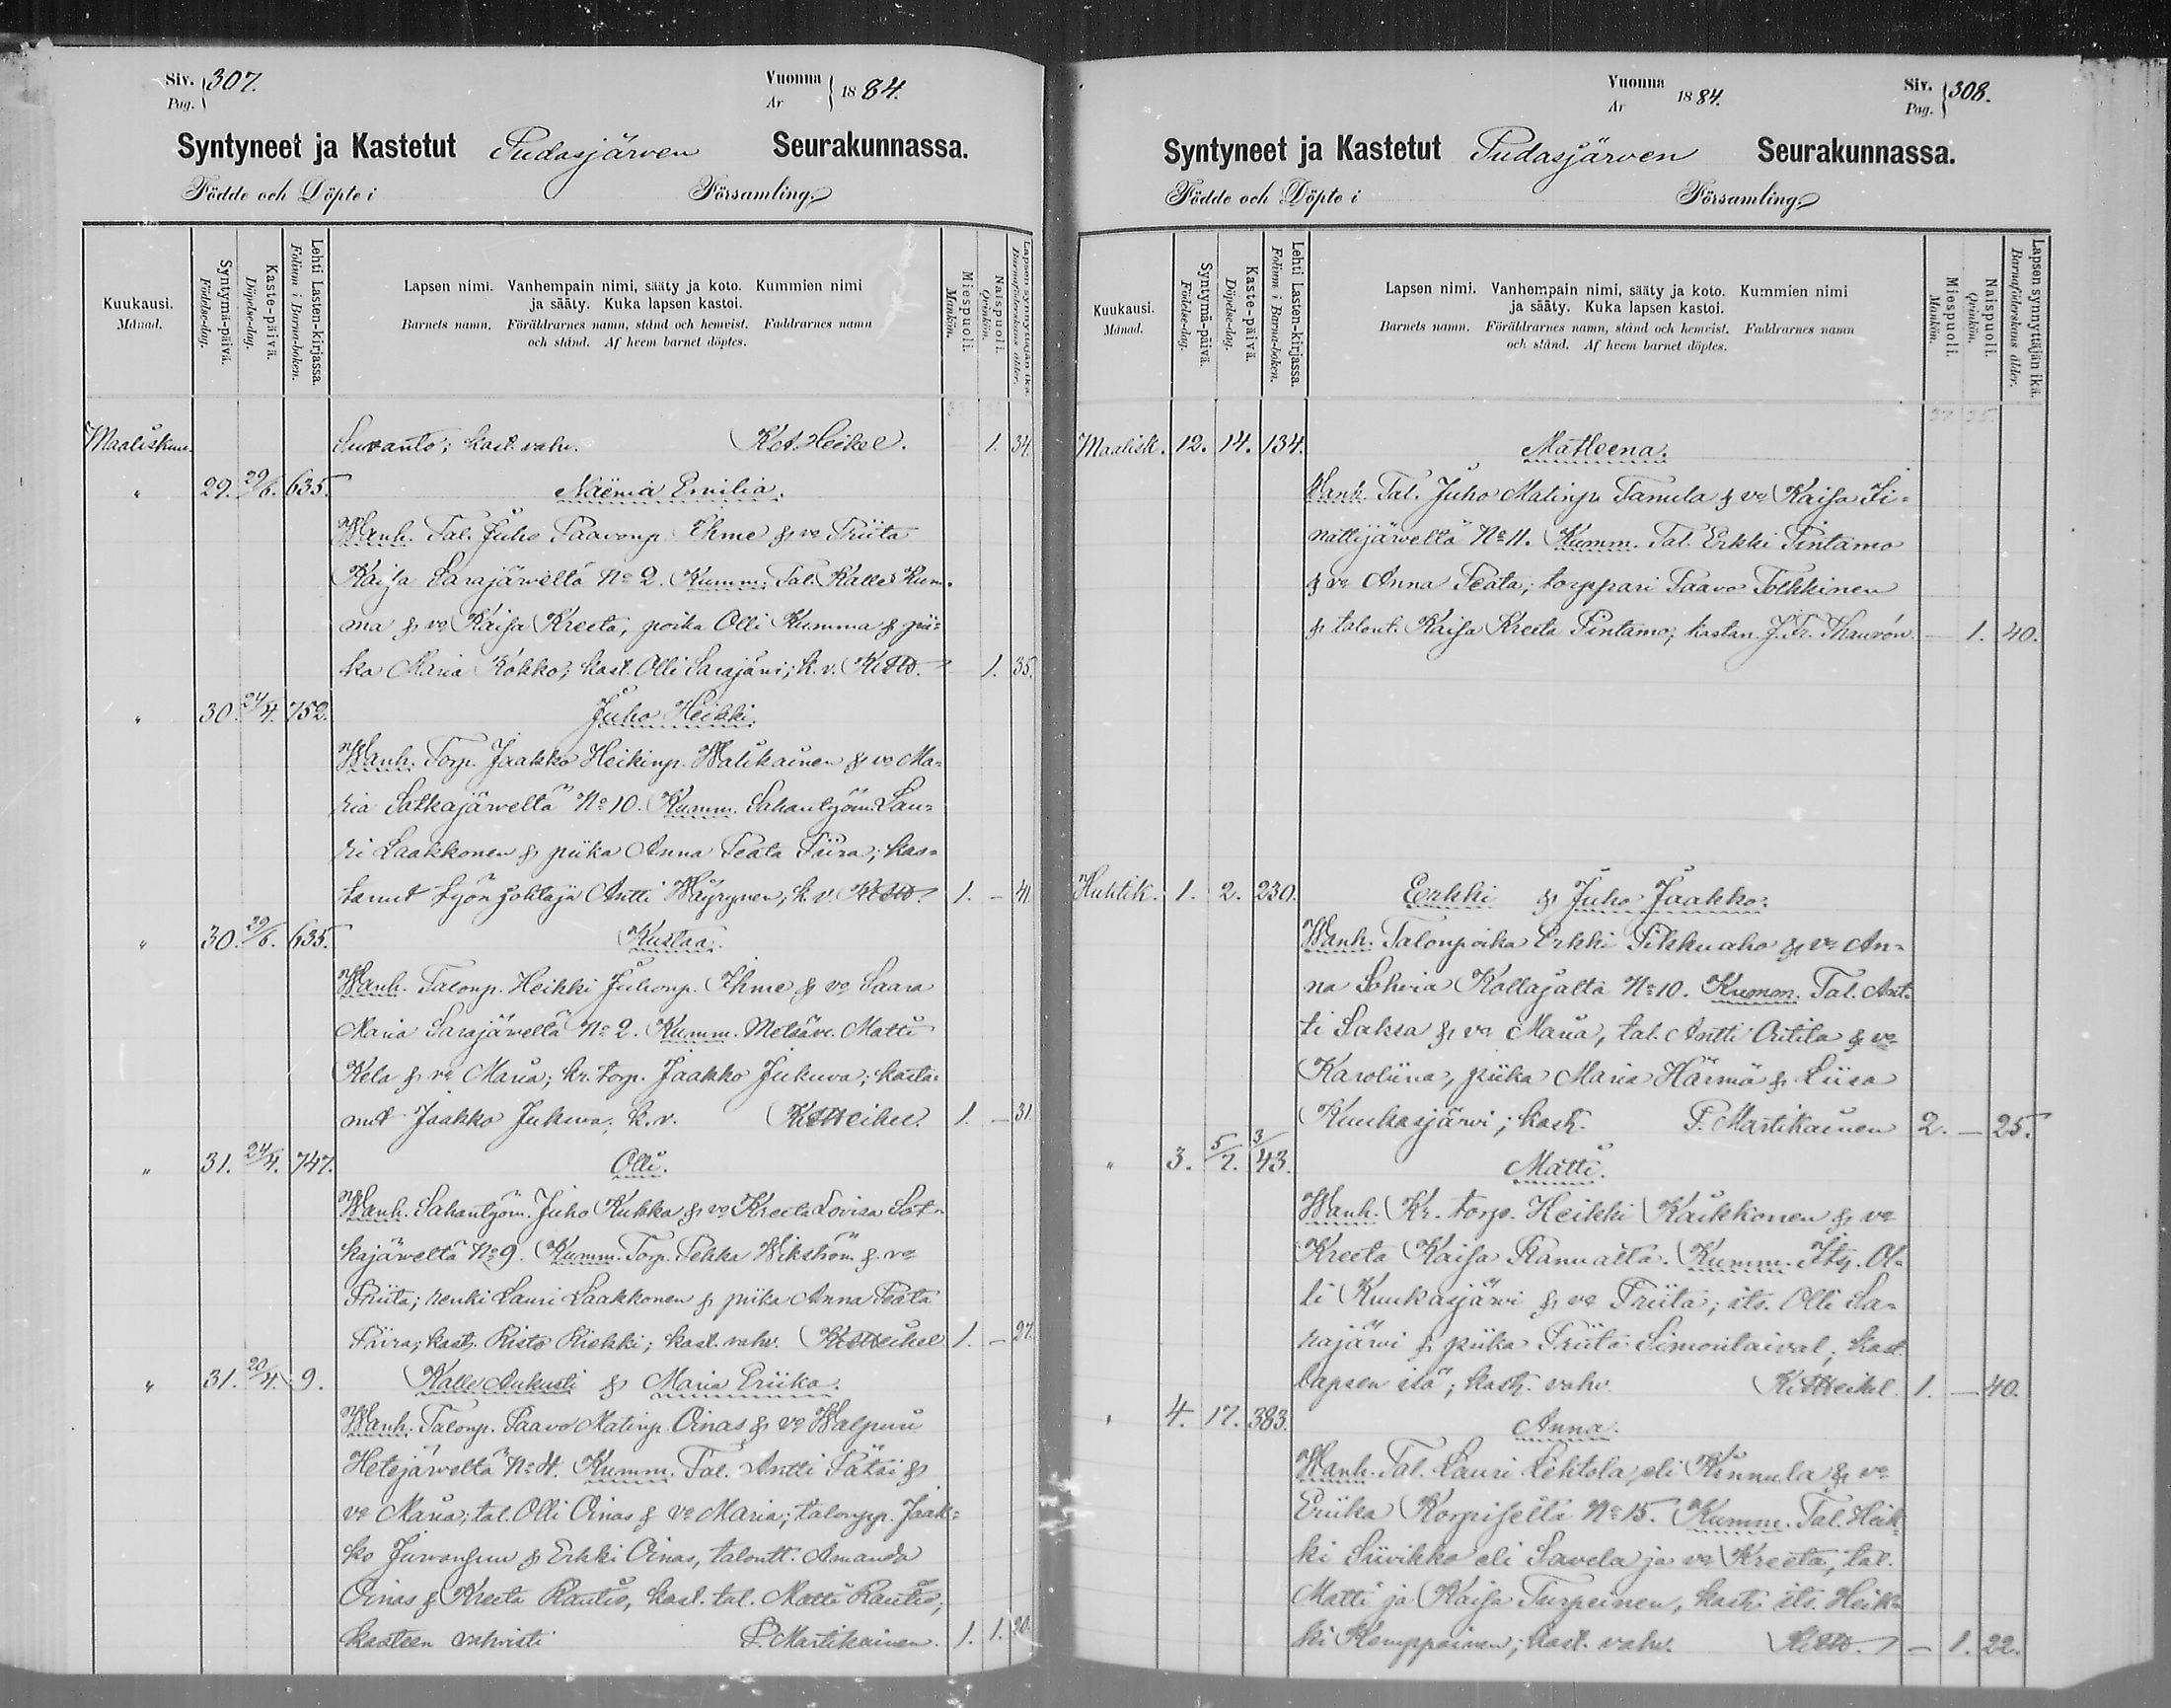 Siv. 307.
Pag.
Vuonna 1884.
År
Syntyneet ja Kastetut Pudasjärven Seurakunnassa.
Födde och Döpte i Församling.
Kuukausi.
Månad.
Syntymä-päivä.
Födelse-dag.
Kaste-päivä.
Döpelse-dag.
Lehti Lasten-kirjassa.
Folium i Barna-boken.
Lapsen nimi. Vanhempain nimi, sääty ja koto. Kummien nimi
ja sääty. Kuka lapsen kastoi.
Barnets namn. Föräldrarnes namn, stånd och hemvist. Faddrarnes namn
och stånd. Af hvem barnet döptes.
Miespuoli.
Mankön.
Naispuoli.
Qvinkön.
Lapsen synnyttäjän ikä.
Barnaföderskans ålder.
Maaliskuu. Suvanto; kast. vahv. Heikel. 1. 34.
" 29. 29/6. 635. Naëmia Emilia.
Wanh. Tal. Juho Paavonp. Ihme & vo Friita
Kaisa Sarajärveltä No 2. Kumm. Tal. Kalle Kum-
ma & vo Kaisa Kreeta, poika Olli Kumma & pii-
ka Maria Kokko; kast. Olli Sarajärvi; k. v. 1. 35.
" 30. 24/4. 752. Juho Heikki.
Wanh. Torp. Jaakko Heikinp. Walikainen & vo Ma-
ria Sotkajärveltä No 10. Kumm. Sahantyöm. Lau-
ri Laakkonen & piika Anna Peata Piira; kas-
tanut työnjohtaja Antti Wäyrynen; k. v. 1. - 41.
" 30. 29/6. 635. Kustaa.
Wanh. Talonp. Heikki Juhonp. Ihme & vo Saara
Maria Sarajärveltä No 2. Kumm. Metsäv. Matti
Kela & vo Maria; kr. torp. Jaakko Jukuva; kasta-
nut Jaakko Jukuva; k. v. Heikel 1. - 31.
" 31. 24/4. 747. Olli.
Wanh. Sahantyöm. Juho Kukka & vo Kreeta Lovisa Sot-
kajärveltä No 9. Kumm. Torp. Pekka Wikström & vo
Priita; renki Lauri Laakkonen & piika Anna Peata
Piira; kast. Risto Riekki; kast. vahv. Heikel 1. - 27.
" 31. 20/4. 9. Kalle Aukusti & Maria Eriika.
Wanh. Talonp. Paavo Matinp. Oinas & vo Walpuri
Hetejärveltä No 4. Kumm. Tal. Antti Pätsi &
vo Maria; tal. Olli Oinas & vo Maria; talonpp. Jaak-
ko Jurvansuu & Erkki Oinas, talontt. Amanda
Oinas & Kreeta Rautio, kast. tal. Matti Rautio;
kasteen vahvisti P. Martikainen. 1. 1. 20.
Vuonna 1884.
År
Siv. 308.
Pag.
Syntyneet ja Kastetut Pudasjärven Seurakunnassa.
Födde och Döpte i Församling.
Kuukausi.
Månad.
Syntymä-päivä.
Födelse-dag.
Kaste-päivä.
Döpelse-dag.
Lehti Lasten-kirjassa.
Folium i Barna-boken.
Lapsen nimi. Vanhempain nimi, sääty ja koto. Kummien nimi
ja sääty. Kuka lapsen kastoi.
Barnets namn. Föräldrarnes namn, stånd och hemvist. Faddrarnes namn
och stånd. Af hvem barnet döptes.
Miespuoli.
Mankön.
Naispuoli.
Qvinkön.
Lapsen synnyttäjän ikä.
Barnaföderskans ålder.
Maalisk. 12. 14. 134. Matleena.
Wanh. Tal. Juho Matinp. Tanula & vo Kaisa
No 11. Kumm. Tal. Erkki Pintamo
& vo Anna Peata; torppari Paavo Tolkkinen
& talont. Kaisa Kreeta Pintamo; kastan. J. Fr. Thauvón. - 1. 40.
Huhtik. 1. 2. 230. Erkki & Juho Jaakko.
Wanh. Talonpoika Erkki Pikkuaho & vo An-
na Sohvia Kollajalta No 10. Kumm. Tal. Ant-
ti Saksa & vo Maria, tal. Antti Outila & vo
Karoliina, piika Maria Härmä & Liisa
Kuukasjärvi; kast. P. Martikainen 2. - 25.
" 3. 5/7. 3/43. Matti.
Wanh. Kr. torp. Heikki Kaikkonen & vo
Kreeta Kaisa Ranualta. Kumm. Its. Ol-
li Kuukasjärvi & vo Friita; its. Olli Sa-
rajärvi & piika Friita Simontaival; kast.
lapsen isä; kast. vahv. Heikel. 1. - 40.
" 4. 17. 383. Anna.
Wanh. Tal. Lauri Lehtola eli Kinnula & vo
Eriika Korpisella No 15. Kumm. Tal. Heik-
ki Siivikko eli Savela ja vo Kreeta; tal.
Matti ja Kaisa Turpeinen, kast. its. Heik-
ki Kemppainen; kast. vahv. - 1. 22.